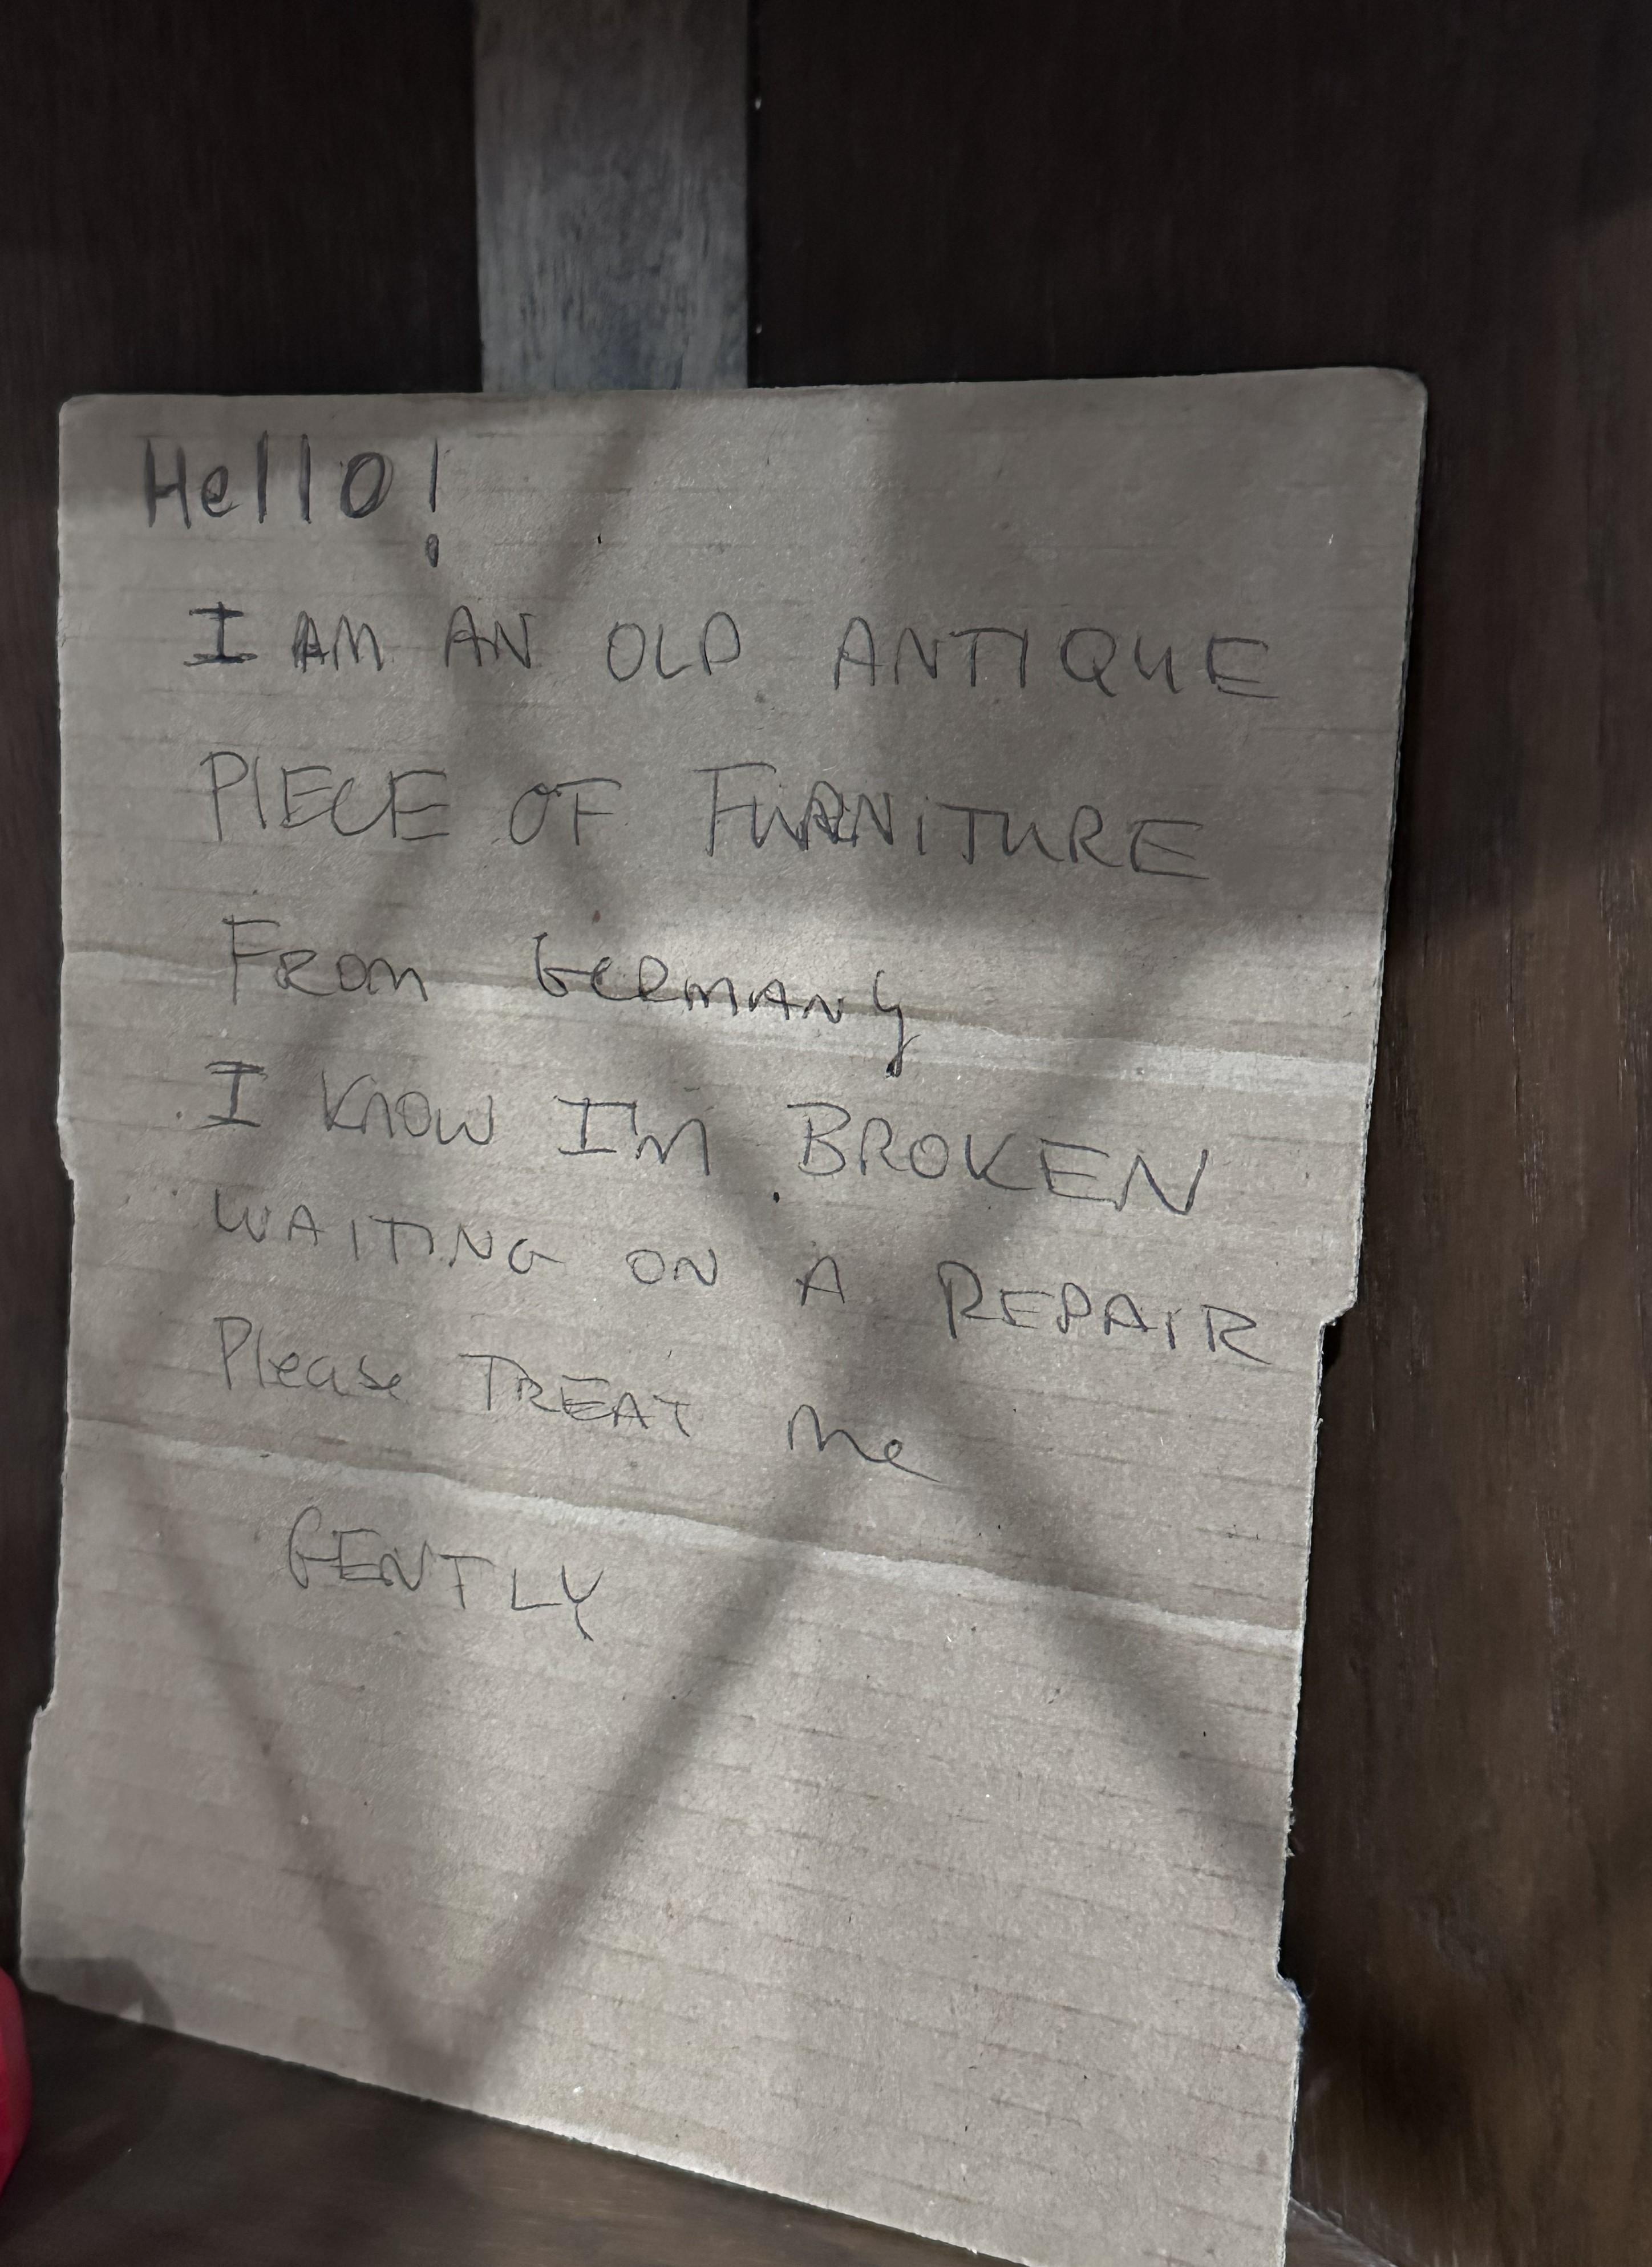 Hello!
I AM AN OLD ANTIQUE
PIECE OF FURNITURE
FROM GERMANY
I KNOW I'M BROKEN
WAITING ON A REPAIR
Please TREAT me
GENTLY